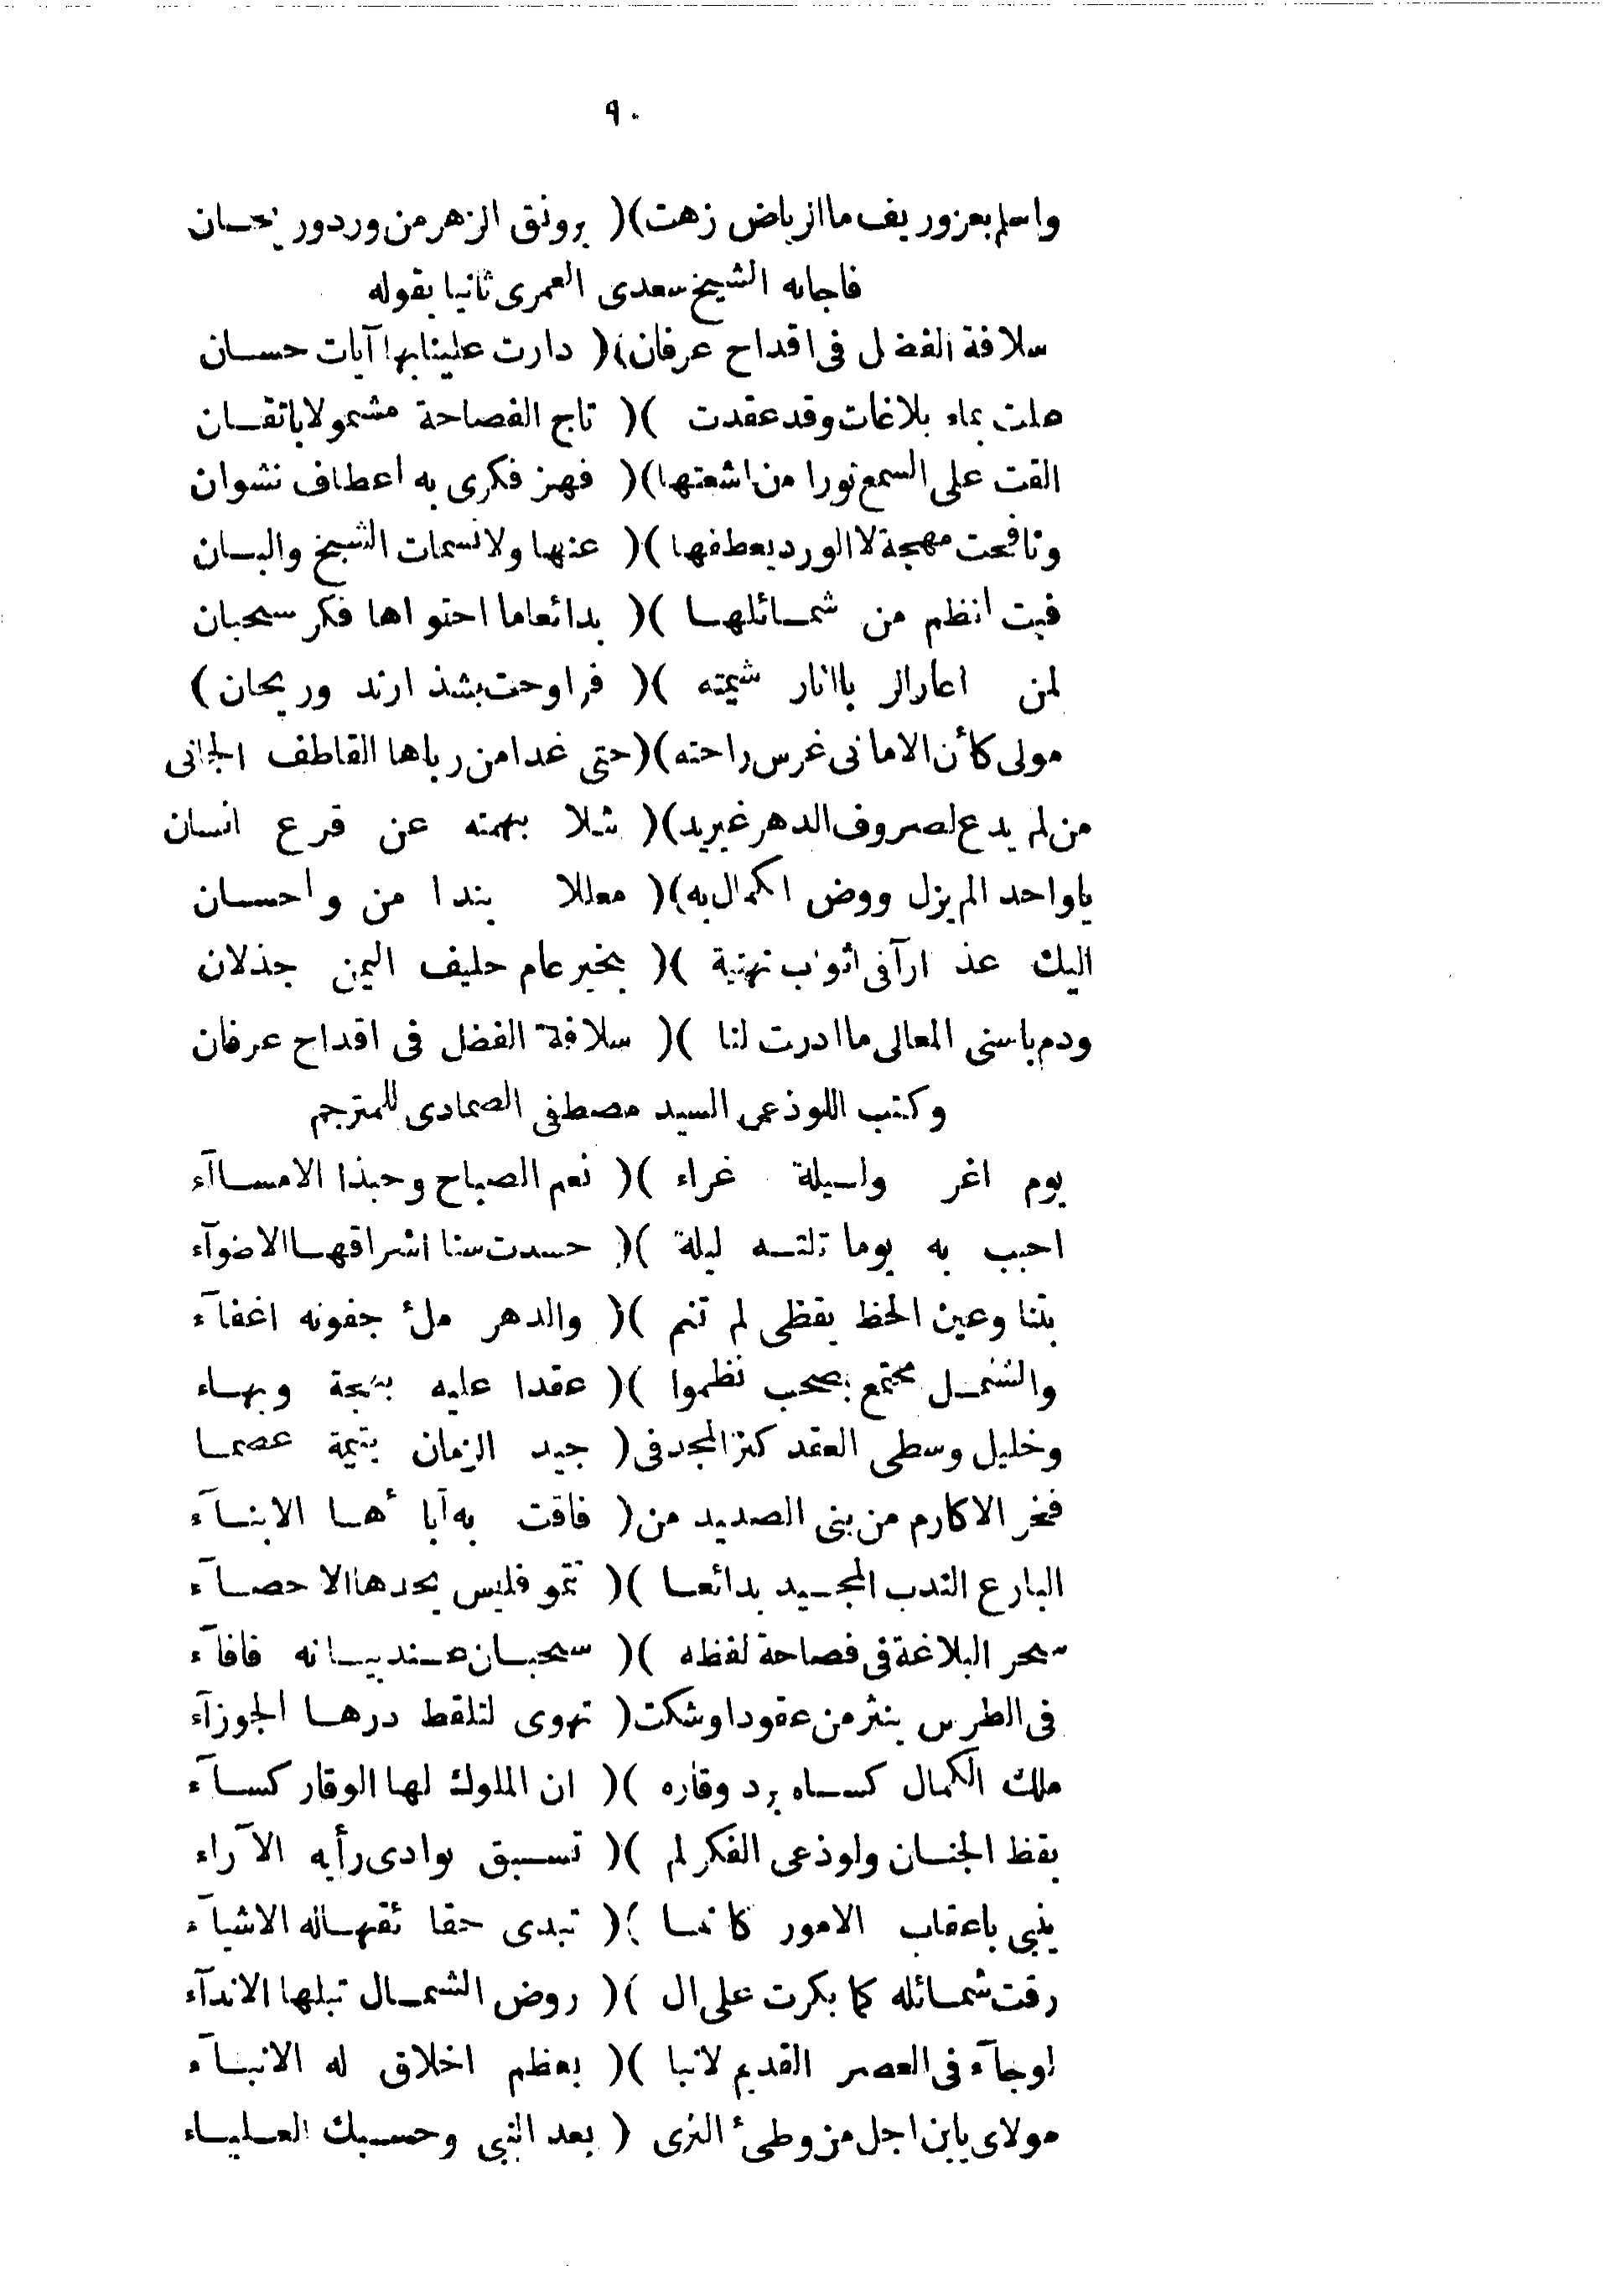 ٩٠
واسلم بعز وريف ما الرياض زهت)( برونق الزهر من ورد وريحسان
فاجابه الشيخ سعدى العمرى ثانيا بقوله
سلافة الفضل فى اقداح عرفان)( دارت علينا بها آيات حسان
علت بماء بلاغات وقد عقدت )( تاج الفصاحة مشمولا باتقان
القت على السمع نورا من اشعتها)( فهز فكرى به اعطاف نشوان
ونافحت مهجة لا الورد يعطفها )( عنها ولا نسمات الشيخ والبان
فبت انظم من شمائلها )( بدائعا ما احتواها فكر سحبان
لمن اعار الربا انار شيمته )( فراوحت بشذا رند وريحان)
مولى كأن الامانى غرس راحته)(حتى غدا من رباها القاطف الجانى
من لم يدع لصروف الدهر غير يد)( شلا بهمته عن قرع انسان
يا واحدا لم يزل وروض الكمال به)( معللا بندا من واحسان
اليك عذرآ فى اثواب تهنية )( بخير عام حليف اليمن جذلان
ودم باسنى المعالى ما ادرت لنا )( سلافة الفضل فى اقداح عرفان
وكتب اللوذعى السيد مصطفى الصمادى للمترجم
يوم اغر وليلة غراء )( نعم الصباح وحبذا الامساآء
احبب به يوما تلته ليلة )( حسدت سنا اشراقها الاضوآء
بتنا وعين الحظ يقظى لم تنم )( والدهر ملء جفونه اغفآء
والشمل مجتمع بصحب نظموا )( عقدا عليه بهجة وبهاء
وخليل وسطى العقد كنز المجد فى ( جيد الزمان يتيمة عصما
فخر الاكارم من بنى الصديد من ( فاقت به آبأها الابنآء
البارع الندب المجيد بدائعا )( تنمو فليس يحدها الاحصآء
سحر البلاغة فى فصاحة لفظه )( سحبان عند بيانه فافآء
فى الطرس ينثر من عقود اوشكت( تهوى لتلقط درها الجوزآء
ملك الكمال كساه برد وقاره )( ان الملوك لها الوقار كسآء
يقظ الجنان ولوذعى الفكر لم )( تسبق بوادى رأيه الآراء
ينبى باعقاب الامور كانما )( تبدى حقائقها له الاشيآء
رقت شمائله كما بكرت على ال )( روض الشمال تبلها الاندآء
لو جآء فى العصر القديم لانبا )( بعظم اخلاق له الانبآء
مولاى يابن اجل من وطئ الثرى ( بعد النبى وحسبك العلياء